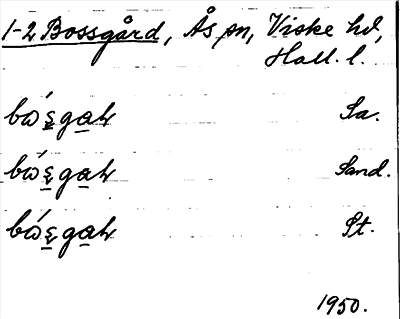 1-2 Bossgård, Ås sn, Viske hd,
Hall. l.
bósgaṙ Sa.
bósgaṙ Sand.
bósgaṙ St.
1950.